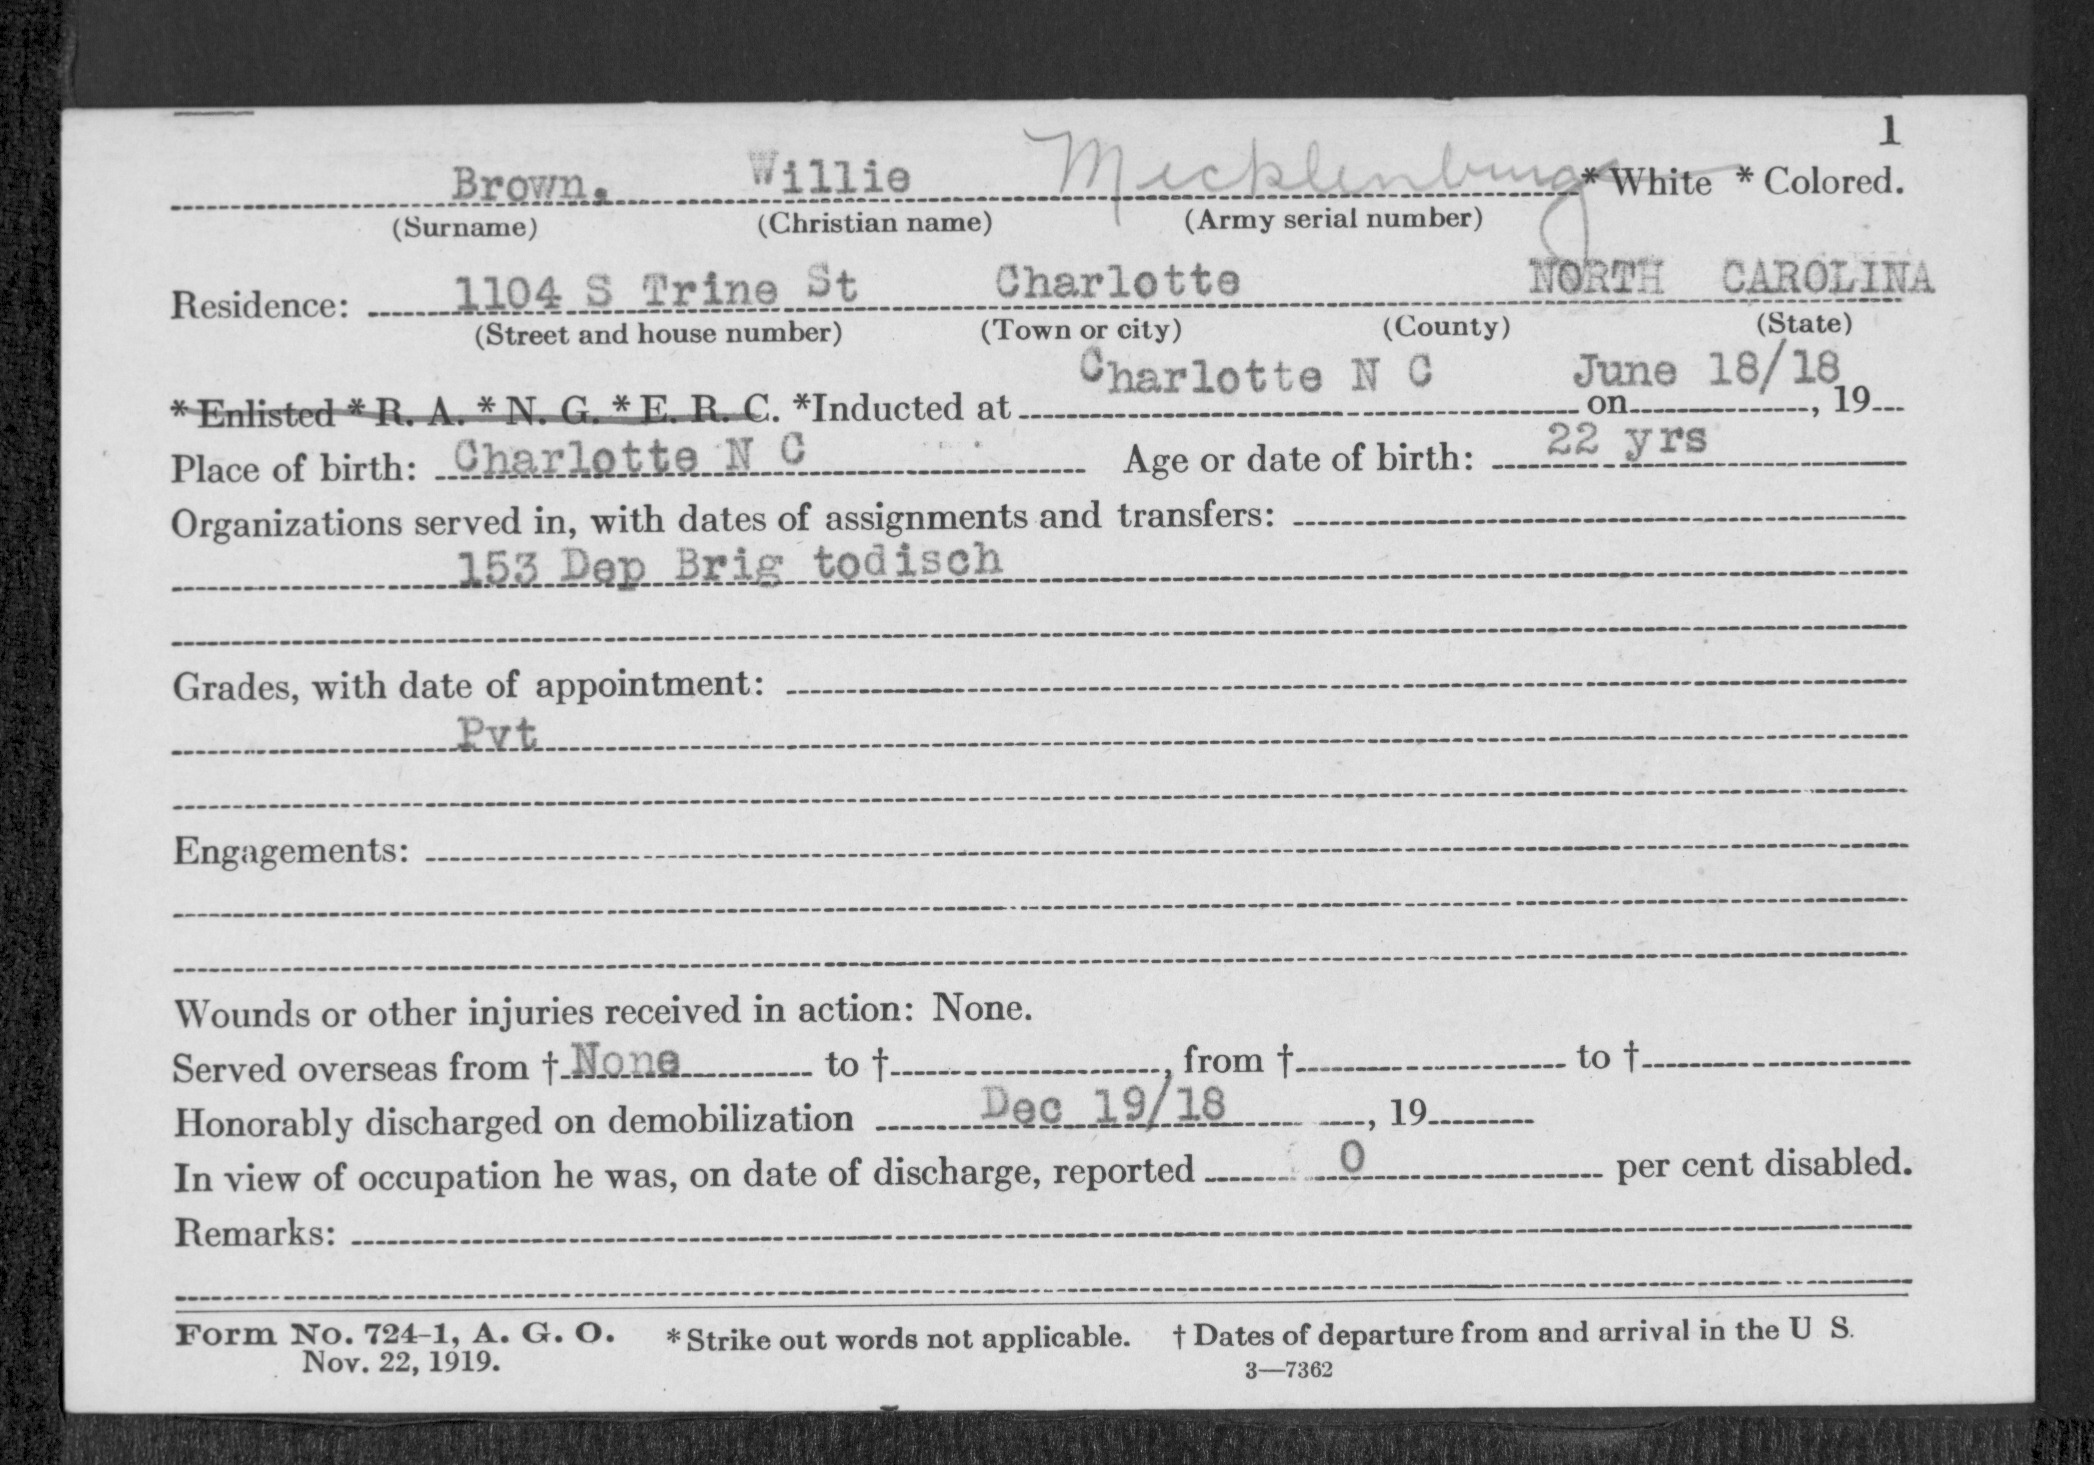 1
Brown, Willie Mecklenburg * White * Colored.
(Surname) (Christian name) (Army serial number)
Residence: 1104 S Trine St Charlotte NORTH CAROLINA
(Street and house number) (Town or city) (County) (State)
* Enlisted * R. A. * N. G. * E. R. C. *Inducted at Charlotte N C on June 18/18, 19
Place of birth: Charlotte N C Age or date of birth: 22 yrs
Organizations served in, with dates of assignments and transfers:
153 Dep Brig todisch
Grades, with date of appointment:
Pvt
Engagements:
Wounds or other injuries received in action: None.
Served overseas from † None to †, from † to †
Honorably discharged on demobilization Dec 19/18, 19
In view of occupation he was, on date of discharge, reported 0 per cent disabled.
Remarks:
Form No. 724-1, A. G. O. * Strike out words not applicable. † Dates of departure from and arrival in the U S.
Nov. 22, 1919. 3—7362